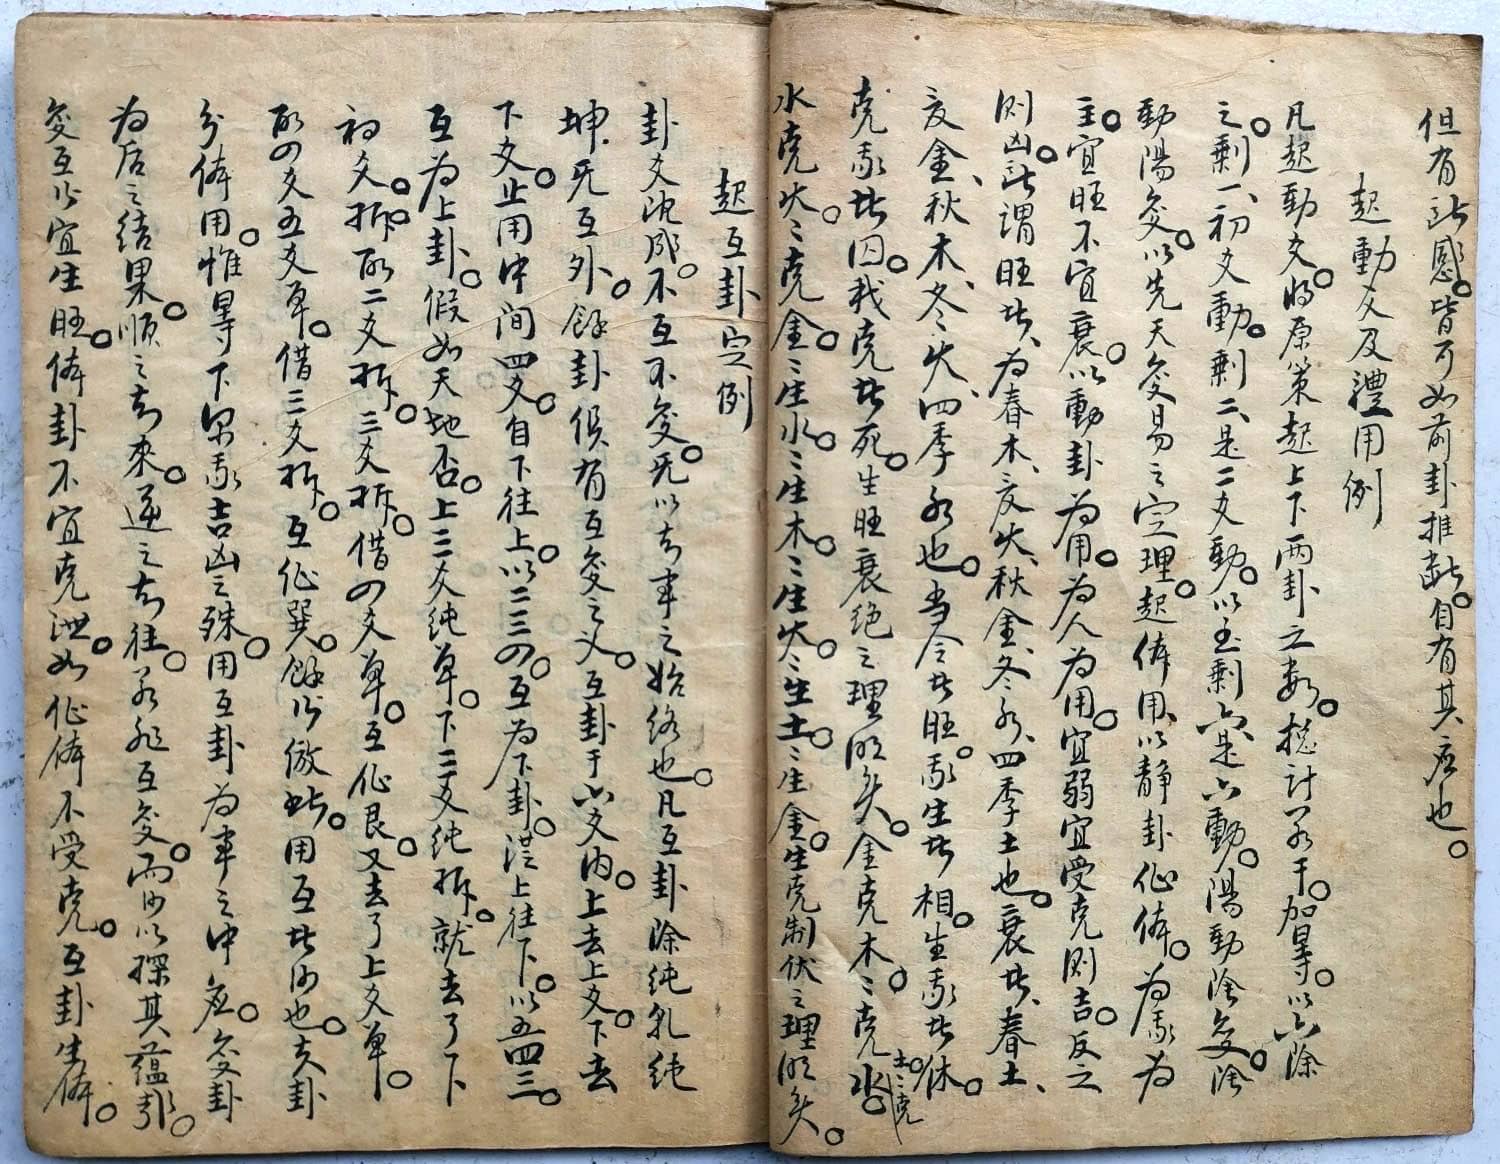 但有所感。皆可如前卦推断。自有其应也。
起動爻及體用例
凡起動爻。将原策起上下两卦之数。捴计若干。加晷。以六除
之。剩一、初爻動。剩二、是二爻動。以至剩六是六動。陽動陰変。陰
動陽変。以先天变易之定理。起体用、以静卦作体。为我为
主。宜旺不宜衰。以動卦为用。为人为用。宜弱宜受克则吉。反之
则凶。所谓旺者、为春木、夏火、秋金、冬水、四季土也。衰者、春土、
夏金、秋木、冬火、四季水也。当令者旺。我生者相。生我者休。
克我者囚。我克者死。生旺衰绝之理明矣。金克木。木克土。土克水。
水克火。火克金。金生水。水生木。木生火。火生土。土生金。生克制伏之理明矣。
起互卦定例
卦爻既成。不互不变。无以知事之始终也。凡互卦除纯乳纯
坤。无互外。餘卦俱有互变之义。互卦于六爻内。上去上爻。下去
下爻。止用中间四爻。自下往上。以二三四。互为下卦。從上往下。以五四三。
互为上卦。假如天地否。上三爻纯单。下三爻纯拆。就去了下
初爻。拆。取二爻拆。三爻拆。借四爻单。互作艮。又去了上爻单。
取四爻五爻单。借三爻拆。互作巽。餘皆倣此。用互者何也。夫卦
分体用。惟晷下朶我吉凶之殊。用互卦为事之中应。变卦
为后之结果。顺之知来。逆之知往。若非互变。而何以探其蕴引。
变互皆宜生旺。体卦不宜克泄。如作体不受克。互卦生体。